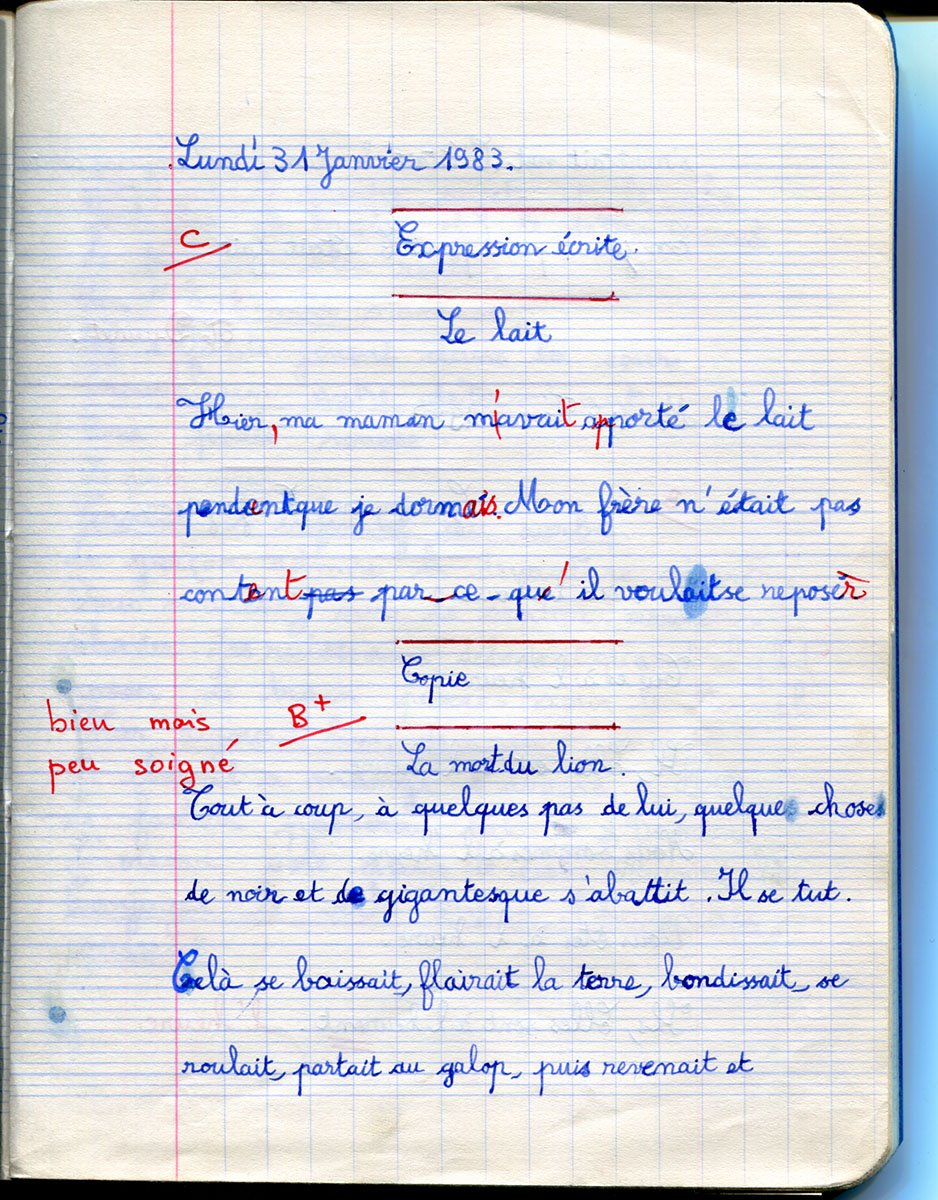 Lundi 31 Janvier 1983.
C
Expression écrite.
Le lait
Hier, ma maman m'avait apporté le lait
pendant que je dormais. Mon frère n'était pas
content pas par-ce-que' il voulait se reposer
Copie
bien mais
peu soigné
B+
La mort du lion.
Tout à coup, à quelques pas de lui, quelques choses
de noir et de gigantesque s'abattit. Il se tut.
Celà se baissait, flairait la terre, bondissait, se
roulait, partait au galop, puis revenait et